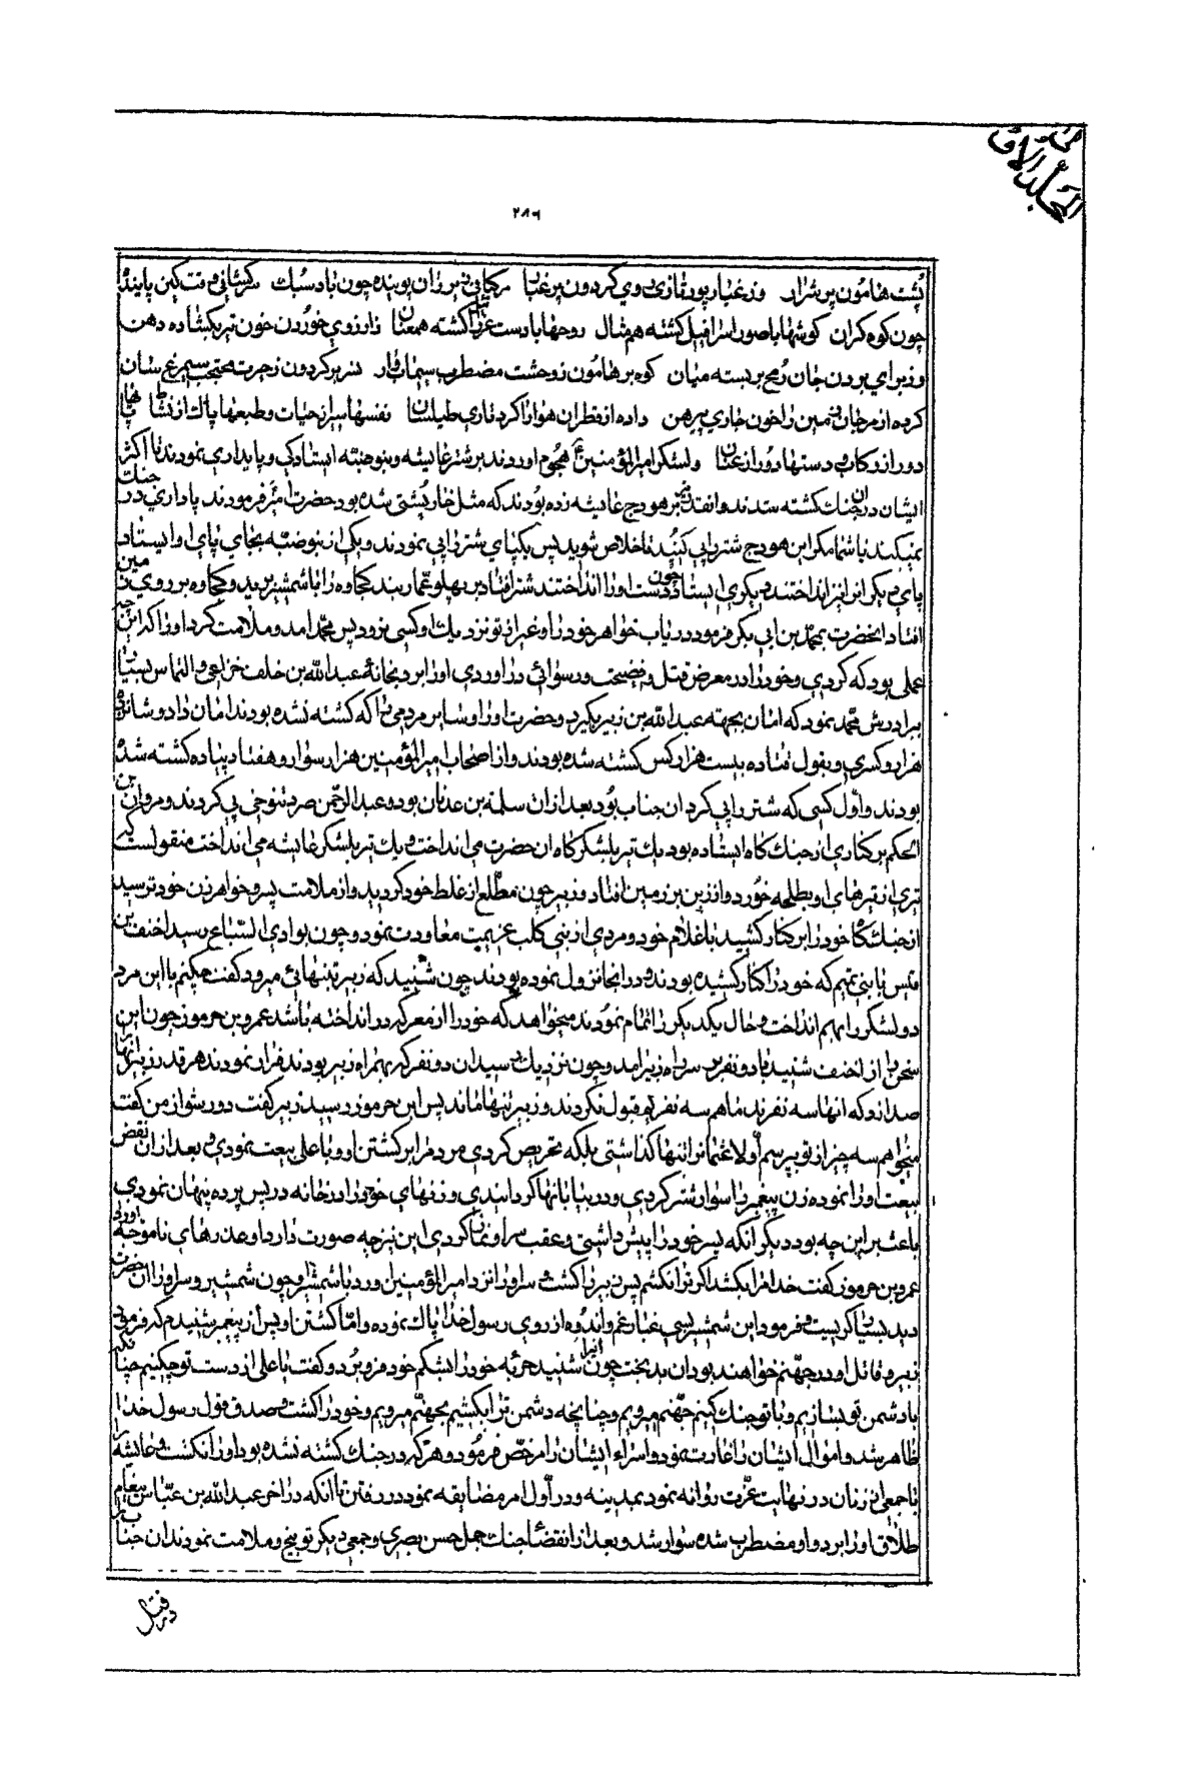 المجلد الاول
۲۸۶
پشت هامون پر شرار وز غبار پور تازی روی کردون پر غبار مرکبانی زیر ران پوینده چون باد سبك کین پاینده
چون کوه کران کوشها با صور اسرافیل کشته هم مثال روحها با دست عزرائیل کشته همعنان ز ارزوی خوردن خون تیر بکشاده دهن
وز برای بردن جان رمح بربسته میان کوه بر هامون ز وحشت مضطرب سیماب وار نسر بر کردون ز حیرت محتجب سیمرغ سان
کرده از مرجان زمین را خون جاری پیرهن داده از قطران هوا را کرد تاری طیلسان نفسها سیر از حیات و طبعها پاك از نشاط پایها
دور از رکاب و دستها دور از عنان ولشکر امیر المؤمنین هجوم اوردند بر شتر عایشه و بنو ضبه ایستادکی و پایداری نمودند تا اکثر
ایشان دران جنك کشته شدند و انقدر تیر بر هودج عایشه زده بودند که مثل خارپشتی شده بود حضرت امیر فرمودند پاداری در جنك
نمیکند با شما مکر این هودج شتر را پی کنید تا خلاص شوید پس یکپای شتر را پی نمودند و یکی از بنو ضبه بجای پای او ایستاد
پای دیکر انرا نیز انداختند دیکری ایستاد چون دست اورا انداختند شتر افتاد بر پهلو عمار بند کجاوه را با شمشیر برید و کجاوه بر روی زمین
افتاد انحضرت بمحمد بن ابی بکر فرمود دریاب خواهر خود را و غیر از تو نزدیك او کسی نرود پس محمد امد و ملامت کرد اورا که این چه
عملی بود که کردی و خود را در معرض قتل و فضیحت و رسوائی در اوردی اورا برد بخانۀ عبد الله بن خلف خزاعی و التماس بسیار
ببرادرش محمد نمود که امان بجهته عبد الله بن زبیر بکیرد و حضرت اورا و سایر مردمی را که کشته نشده بودند امان داد و شانزده
هزار و کسری و بقول قتاده بیست هزار کس کشته شده بودند و از اصحاب امیر المؤمنین هزار سوار و هفتاد پیاده کشته شده
بودند و اول کسی که شتر را پی کرد ان جناب بود بعد ازان سلمة بن عدنان بود و عبد الرحمن صرد تنوخی پی کردند و مروان بن
الحکم بر کناری از جنك کاه ایستاده بود یك تیر بلشکر کاه ان حضرت می انداخت و یك تیر بلشکر عایشه می انداخت منقولست که
تیری از تیرهای او بطلحه خورد و از زین بر زمین افتاد و زبیر چون مطلع از غلط خود کردید و از ملامت پسر و خواهر زن خود ترسید
از جنك کاه خود را بر کنار کشید با غلام خود و مردی از بنی کلب عزیمت معاودت نمود و چون بوادی السباع رسید احنف بن
قیس با بنی تمیم که خود را کنار کشیده بودند و در انجا نزول نموده بودند چون شنید که زبیر بتنهائی میرود کفت چکنم با این مرد
دو لشکر را بهم انداخت و حال یکدیکر را تمام نمودند میخواهد که خود را از معرکه در انداخته باشد عمرو بن جرموز چون این
سخن را از احنف شنید با دو نفر بر سر راه زبیر امد و چون نزدیك رسیدان دو نفر که بهمراه زبیر بودند فرار نمودند هر قدر زبیر انها را
صدا زد که انها سه نفرند ما هم سه نفریم قبول نکردند و زبیر تنها ماند پس ابن جرموز رسید زبیر کفت دور شو از من کفت
میخواهم سه چیز از تو بپرسم اولا عثمانرا تنها کذاشتی بلکه تحریص کردی مردم را بر کشتن او و با علی بیعت نمودی و بعد ازان نقض
بیعت اورا نموده زن پیغمبر را سوار شتر کردی و در بیابانها کردانیدی و زنهای خود را در خانه در پس پرده پنهان نمودی
باعث بر این چه بود دیکر انکه پسر خود را پیش داشتی و عقب سر او نماز کردی این نیز چه صورت دارد او عذرهای ناموجه اورد
عمرو بن جرموز کفت خدا مرا بکشد اکر ترا نکشم پس زبیر را کشت و سر اورا نزد امیر المؤمنین اورد با شمشیر او چون شمشیر و سر اورا ان حضرت
دید بسیار کریست و فرمود این شمشیر بسی غبار غم و اندوه از روی رسول خدا پاك نموده و اما کشتن او پس از پیغمبر شنیدم که فرمود
زبیر و قاتل او در جهنم خواهند بود ان بدبخت چون انرا شنید حربه خود را بشکم خود فرو برد و کفت یا علی از دست تو چکنیم چنانکه
با دشمن تو بسازیم و با تو جنك کنیم جهنم میرویم و چنانچه دشمن ترا بکشیم بجهنم میرویم و خود را کشت و صدق قول رسول خدا
ظاهر شد و اموال ایشان را غارت نمود و اسراء ایشان را مرخص فرمود و هر که در جنك کشته نشده بود اورا نکشت و عایشه را
با جمعی از زنان در نهایت عزت روانه نمود بمدینه و در اول امر مضایقه نمود در رفتن تا انکه در اخر عبد الله بن عباس پیغام
طلاق اورا برد و او مضطرب شده سوار شد و بعد از انقضاء جنك جمل حسن بصری و جمعی دیکر توبیخ و ملامت نمودند ان جناب را
در قتل